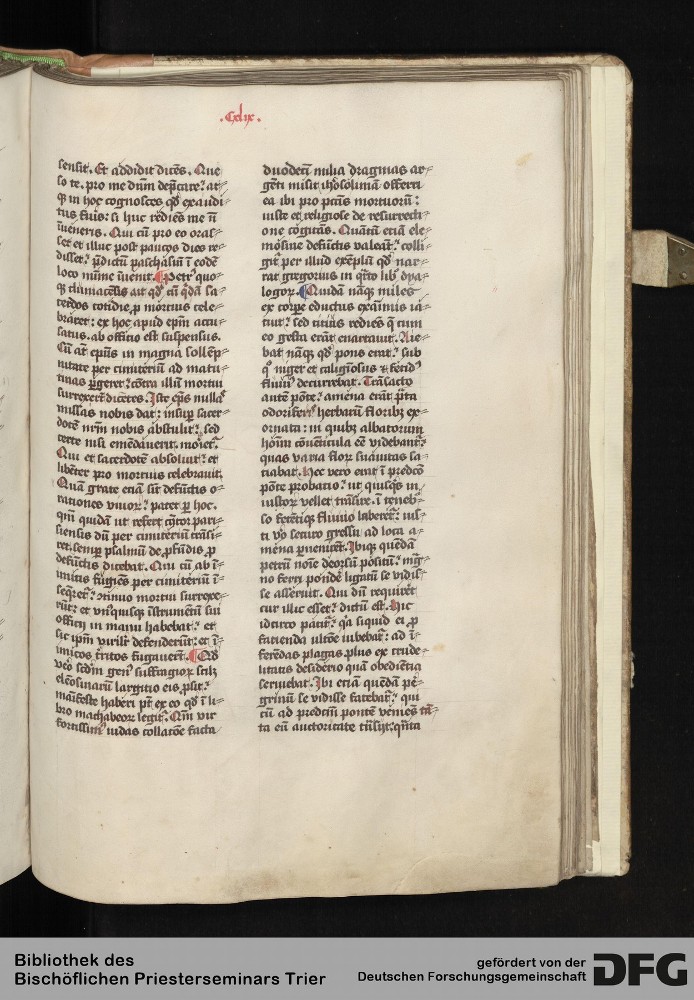 .Cxlix.
sensit. Et addidit dicēs. Que
so te. pro me dūm dep̄care: at
q̄ in hoc cognosces qd̄ exaudi
tus fuis: si huc rediēs me n̄
īueneris. Qui cū pro eo oras
set et illuc post paucos dies re
disset: p̄dictū paschasiū ī eodē
loco mīme īuenit. Petrꝰ quo
q̄ cluniacēsis ait qd̄ cū q̄dā sa
cerdos cotidie p̄ mortuis cele
braret: ex hoc apud ep̄m accu
satus. ab officio est suspensus.
Cū at ep̄us in magna sollēp
nitate per cimiteriū ad matu
tinas p̄geret: cōtra illū mortui
surrexerūt dicētes. Iste ep̄s nullā
missas nobis dat: insup̄ sacer
dotē nr̄m nobis abstulit: sed
certe nisi emēdauerit. moret̄.
Qui et sacerdotē absoluit: et
libēter pro mortuis celebrauit.
Quā grate eciā sīt defūctis o
rationes viuoꝝ: patet p̄ hoc.
qm̄ quidā ut refert cātor pari
siensis dū per cimiteriū trāsi
ret. semp̄ psalmū de p̄fūdis p̄
defūctis dicebat. Qui cū ab ī
imicis fugiēs per cimiteriū ī
seq̄ret̄: 9tinuo mortui surrexe
rūt: et vnꝰquisque īstrumētū sui
officij in manu habebat: et
sic ip̄m virilit̄ defenderūt: et ī
imicos t̄ritos fugauerūt. Qd̄
vero scdm̄ genꝰ suffragioꝝ scilꝫ
elēosinarū largitio eis p̄sit:
maīfeste haberi pt̄ ex eo qd̄ ī li
bro machabeoꝝ legit̄. Qm̄ vir
fortissimꝰ iudas collatōe facta
duodecī milia dragmas ar
gēti misit ihr̄osolimā offerri
ea ibi pro pc̄tis mortuorū:
iuste et religiose de resurrecti
one cogitās. Quātū eciā ele
mōsine defūctis valeāt: colli
git̄ per illud exēplū qd̄ nar
rat gregorius in q̄rto lib̄ dya
logoꝝ. Quidā nāq̄ miles
ex corpe eductus exāimis ia
cuit: sed citius rediēs q̄ cum
eo gesta erāt enarrauit. Aie
bat nāq̄ qd̄ pons erat: sub
qͦ niger et caligīosus et fetidꝰ
fluuiꝰ decurrebat. Trāsacto
autē pōte: amena erāt p̄ta
odoriferꝭ herbarū floribꝫ ex
ornata: in quibꝫ albatorum
hōim cōuēticula eē videbant̄:
quas varia floꝝ suauitas sa
ciabat. Hec vero erat ī predcō
pōte probatio: ut quisqͥs in
iustoꝝ vellet trāsire. ī tenebͦ
so fetētique fluuio laberet̄: ius
ti vͦ securo gressu ad loca a
mena p̄uenirēt. Ibiqꝫ quēdā
petrū noīe deorsū pōsitū: mḡ
no ferri pōdē ligatū se vidis
se asseruit. Qui dū requiret̄
cur illic esset: dictū est. Hic
idcirco patit̄: qa siquid ei p̄
facienda ultōe iubebat̄: ad ī
ferēdas plagas plus ex crude
litatis desiderio quā obediētia
seruiebat. Ibi etiam quēdā pe
grinū se vidisse fatebat̄: qui
cū ad predcm̄ pontē veniēs tā
ta eū auctoritate trāsijt. qn̄ta
Bibliothek des
Bischöflichen Priesterseminars Trier
gefördert von der
Deutschen Forschungsgemeinschaft
DFG